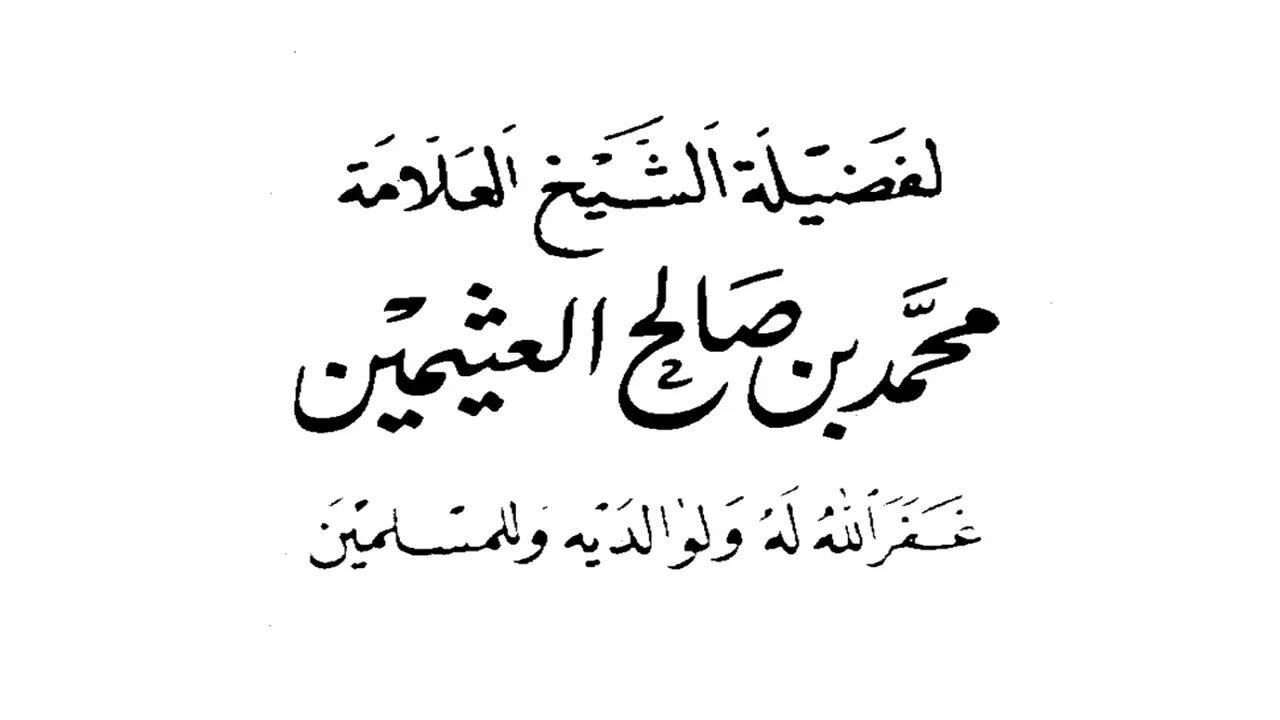 لفَضيْلَة اَلشَّيْخ اَلعَلَامَة
محَمَّد بن صَالح العثيميْن
غَفَرَ اَللّٰهُ لَهُ وَلوَالدَيْه وَللمسْلميْنَ